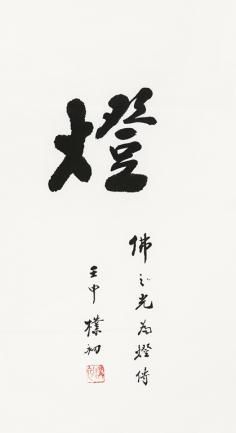 燈
佛之光為燈傳
壬申 樸初